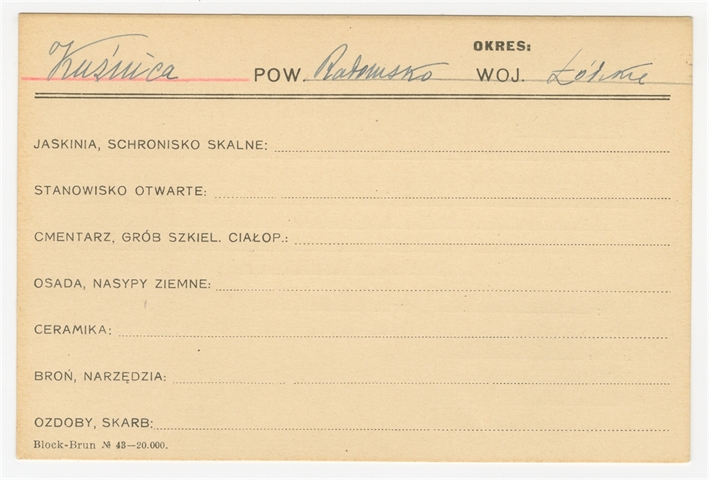 OKRES:
Kuźnica POW. Radomsko WOJ. Łódzkie
JASKINIA, SCHRONISKO SKALNE:
STANOWISKO OTWARTE:
CMENTARZ, GRÓB SZKIEL. CIAŁOP.:
OSADA, NASYPY ZIEMNE:
CERAMIKA:
BROŃ, NARZĘDZIA:
OZDOBY, SKARB:
Block-Brun № 43—20.000.